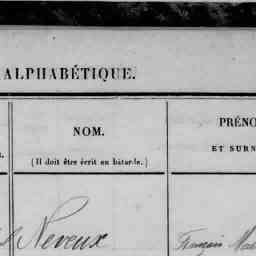 ALPHABÉTIQUE.
NOM.
(Il doit être écrit en bâtarde.)
PRÉNO
ET SURN
Neveux
François